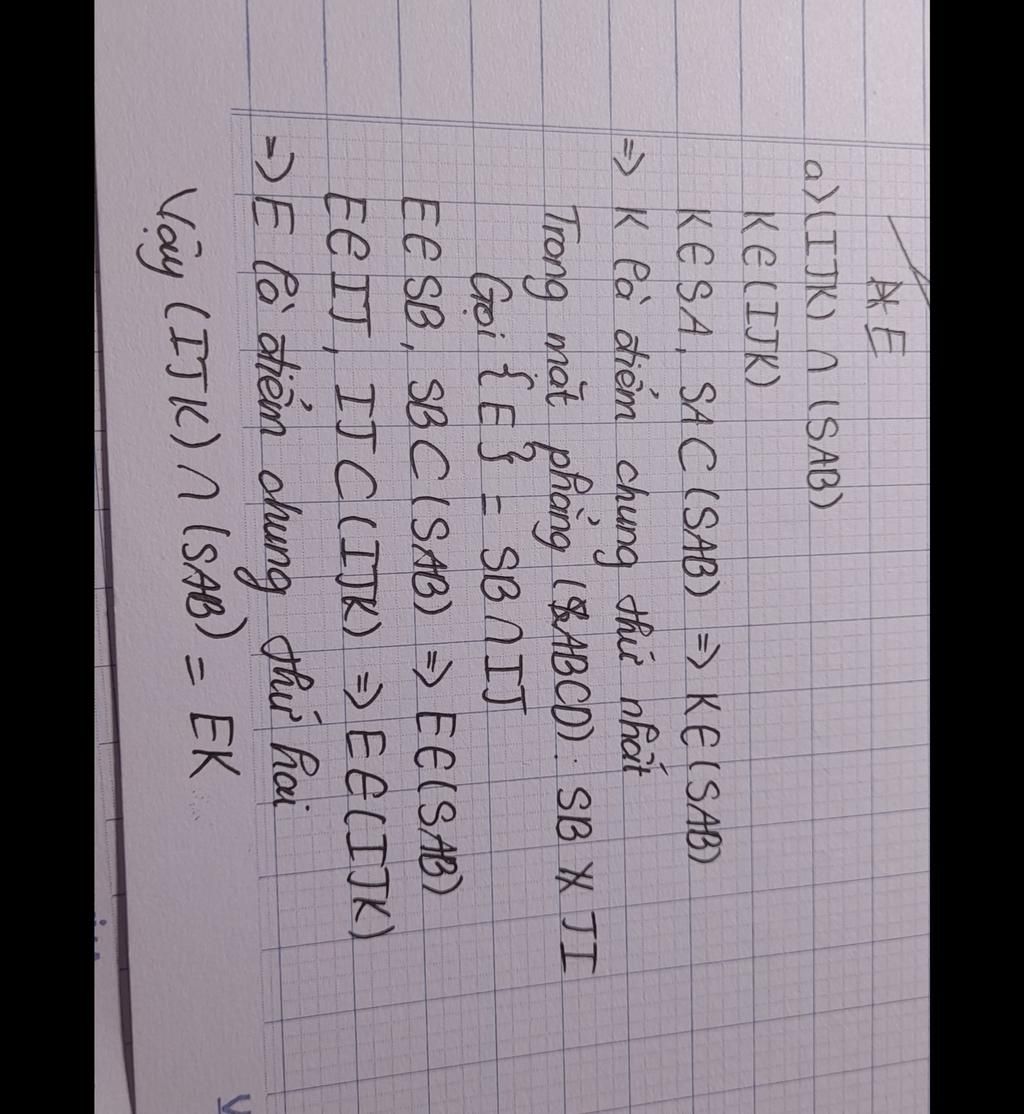 E
a) (IJK) ∩ (SAB)
K∈(IJK)
K∈SA, SAC(SAB) => K∈(SAB)
=> K là điểm chung thứ nhất
Trong mặt phẳng (ABCD): SB ∦ JI
Gọi {E} = SB ∩ IJ
E∈SB, SBC(SAB) => E∈(SAB)
E∈IJ, IJC(IJK) => E∈(IJK)
=> E là điểm chung thứ hai
Vậy (IJK) ∩ (SAB) = EK